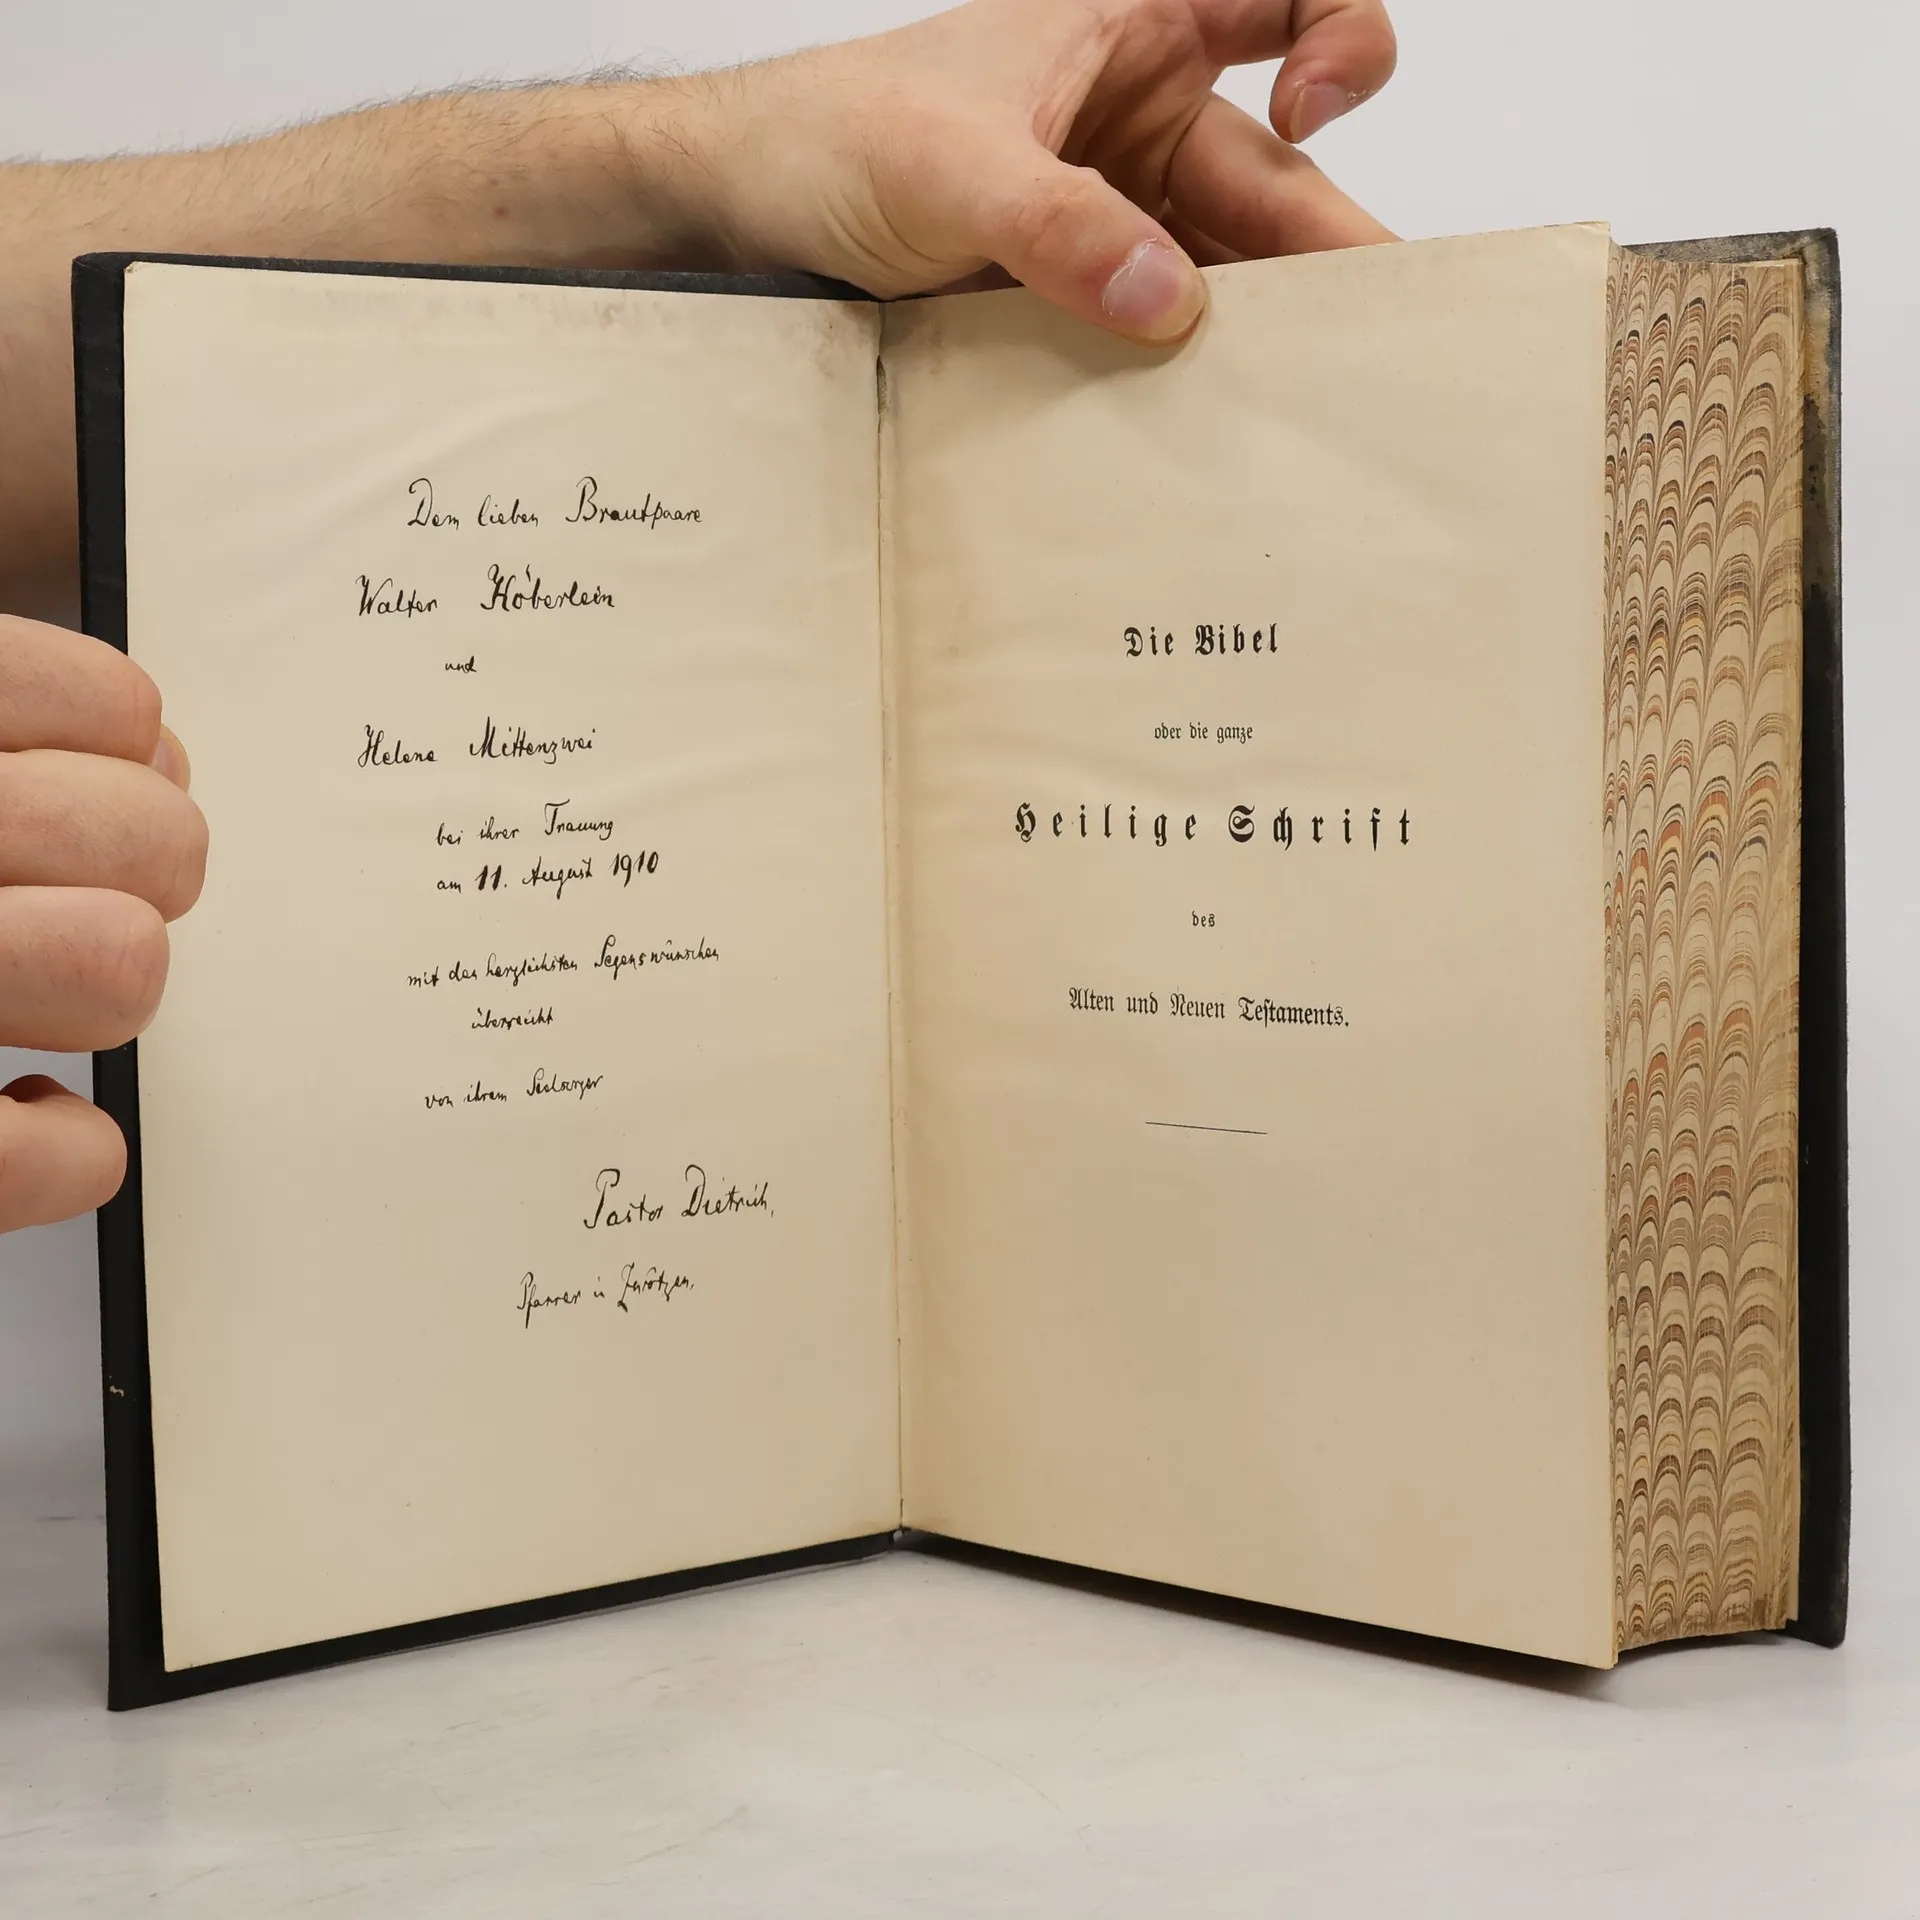 Dem lieben Brautpaare
Walter Köberlein
und
Helene Mittenzwei
bei ihrer Trauung
am 11. August 1910
mit den herzlichsten Segenswünschen
überreicht
von ihrem Seelsorger
Pastor Dietrich,
Pfarrer in Zwötzen.
Die Bibel
oder die ganze
Heilige Schrift
des
Alten und Neuen Testaments.